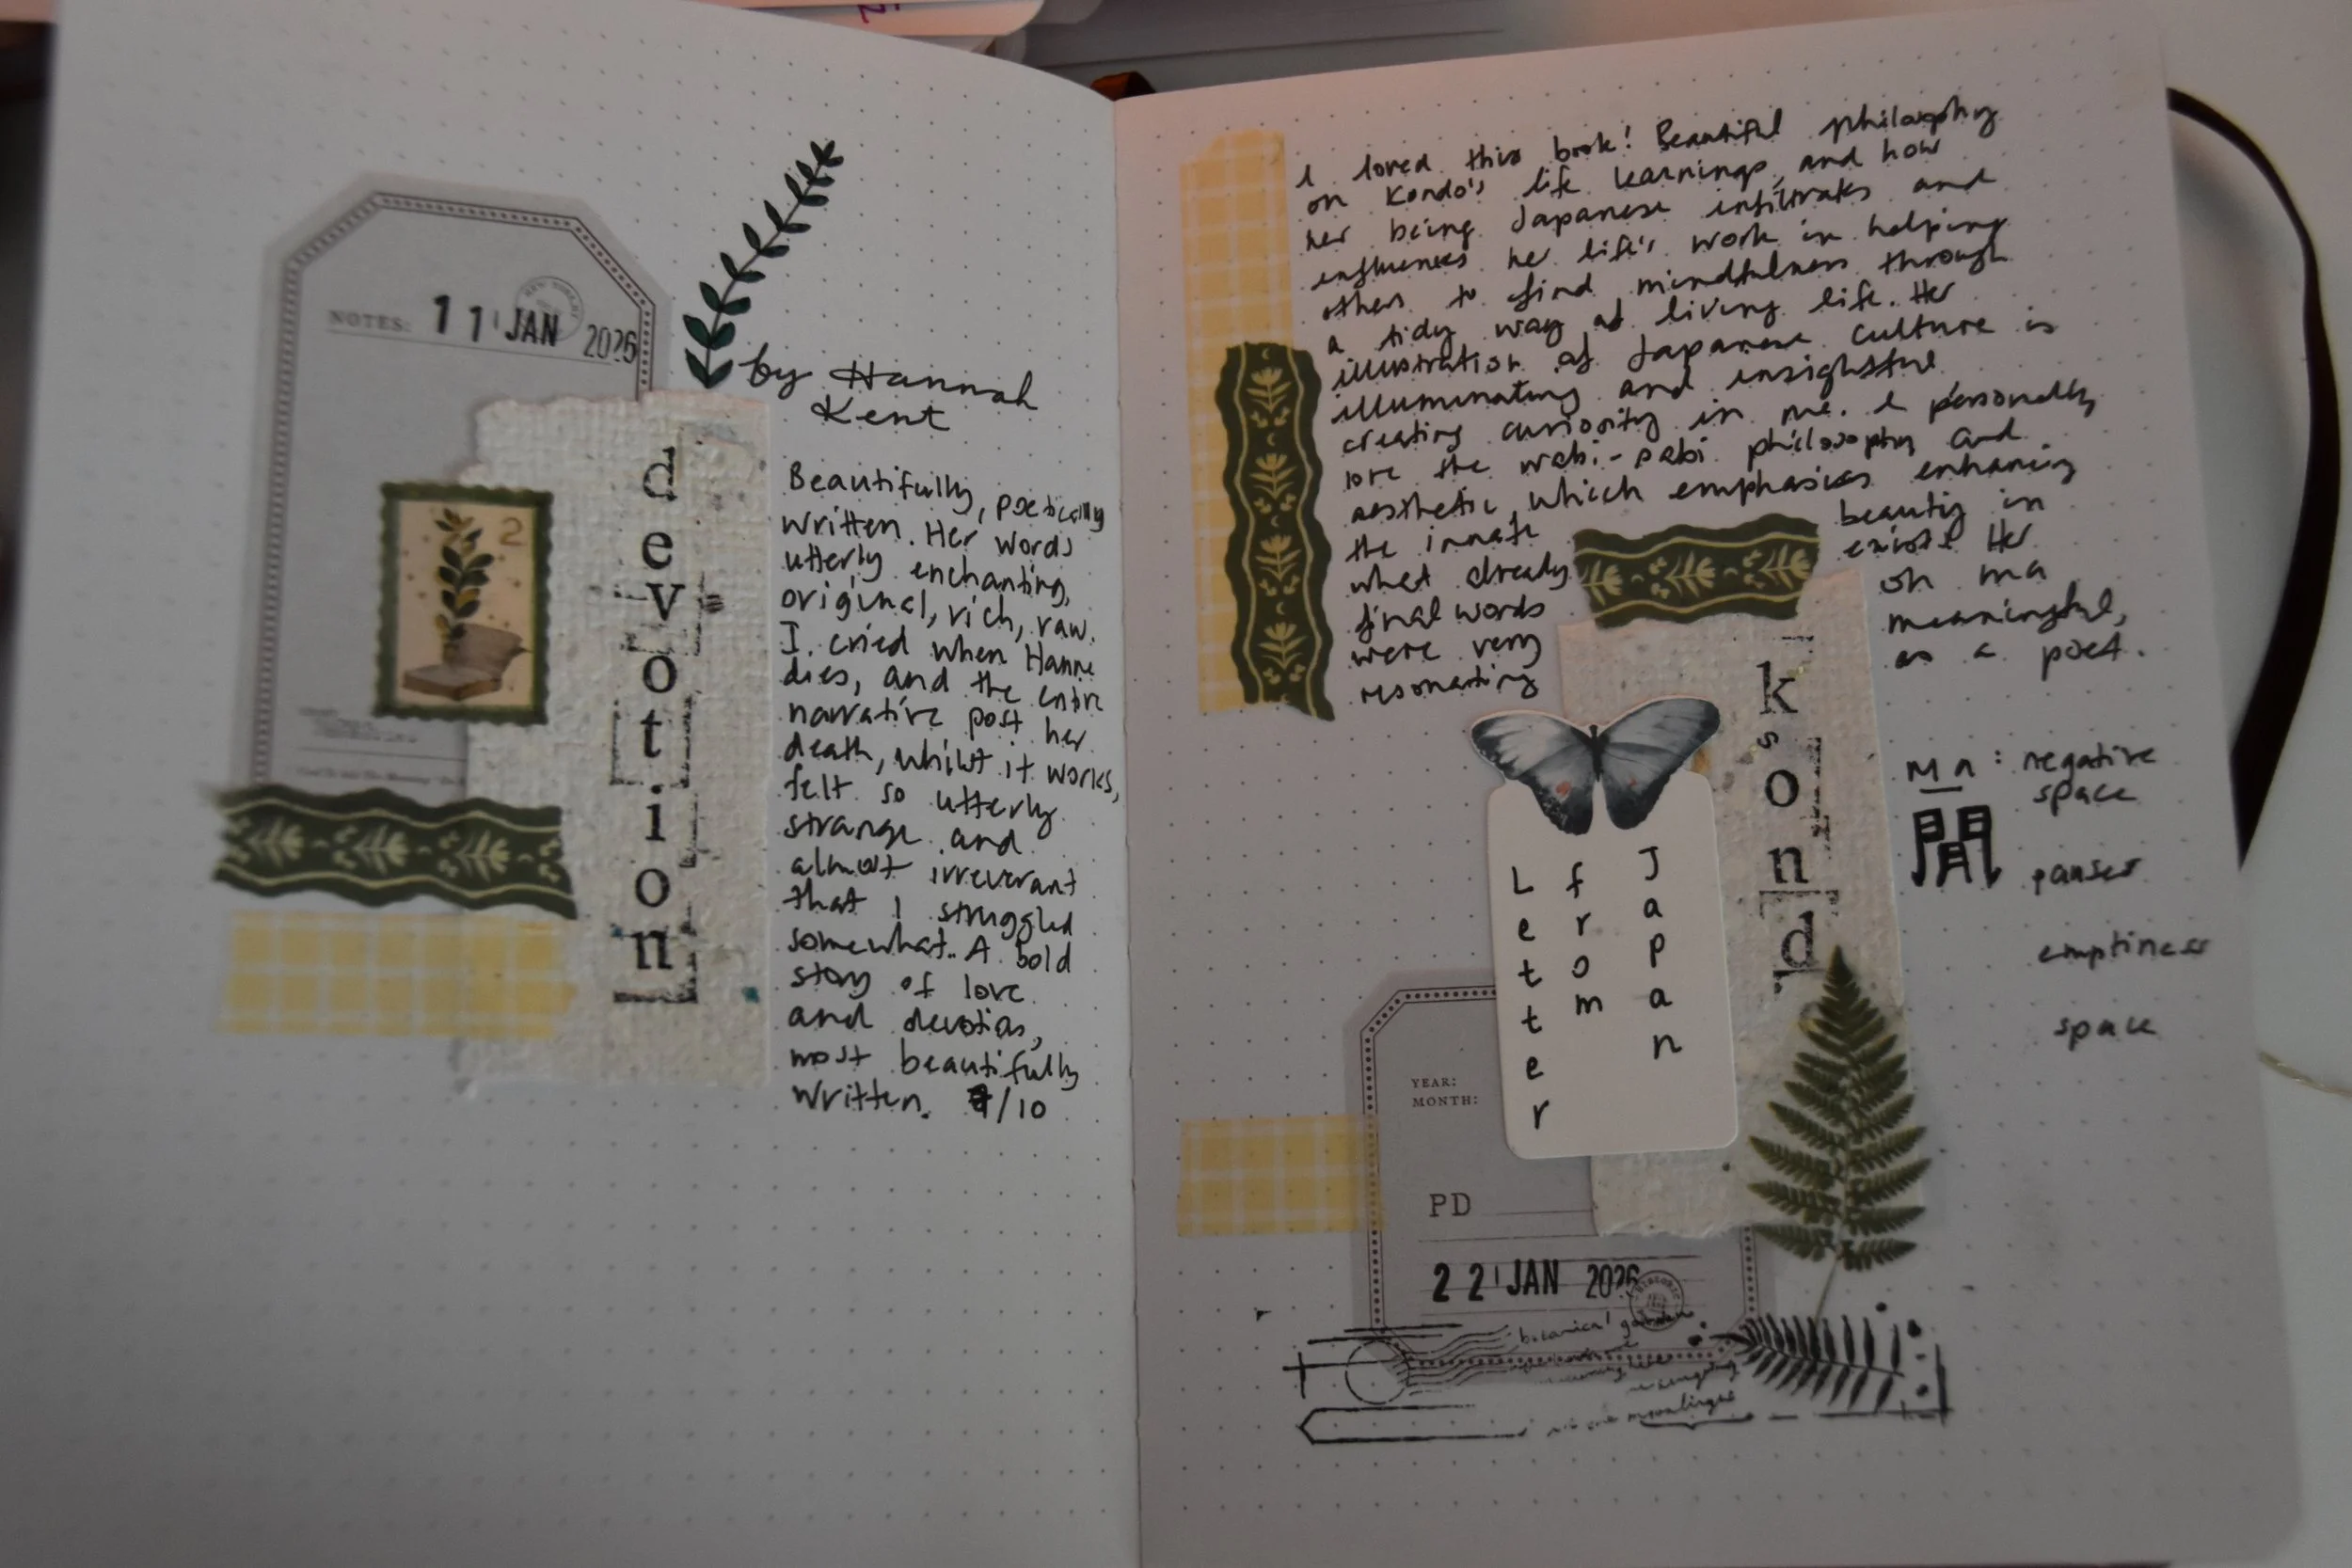 NOTES: 11 JAN 2026
devotion
2
by Hannah
Kent
Beautifully, poetically
written. Her words
utterly enchanting,
original, rich, raw.
I cried when Hanne
dies, and the entire
narrative post her
death, whilst it works,
felt so utterly
strange and
almost irreverant
that I struggled
somewhat.. A bold
story of love
and devotion,
most beautifully
written. /10
I loved this book! Beautiful philosophy
on Kondo's life learnings, and how
her being Japanese infiltrates and
influences her life's work in helping
others to find mindfulness through
a tidy way of living life. Her
illustration of Japanese culture is
illuminating and insightful
creating curiosity in me. I personally
love the wabi-sabi philosophy and
aesthetic, which emphasises enhancing
the innate beauty in
what already exists. Her
final words on ma
were very meaningful,
resonating as a poet.
k s o n d
Letter
from
Japan
Ma: negative
space
間
pauses
emptiness
space
YEAR:
MONTH:
PD
22 JAN 2026
botanical garden